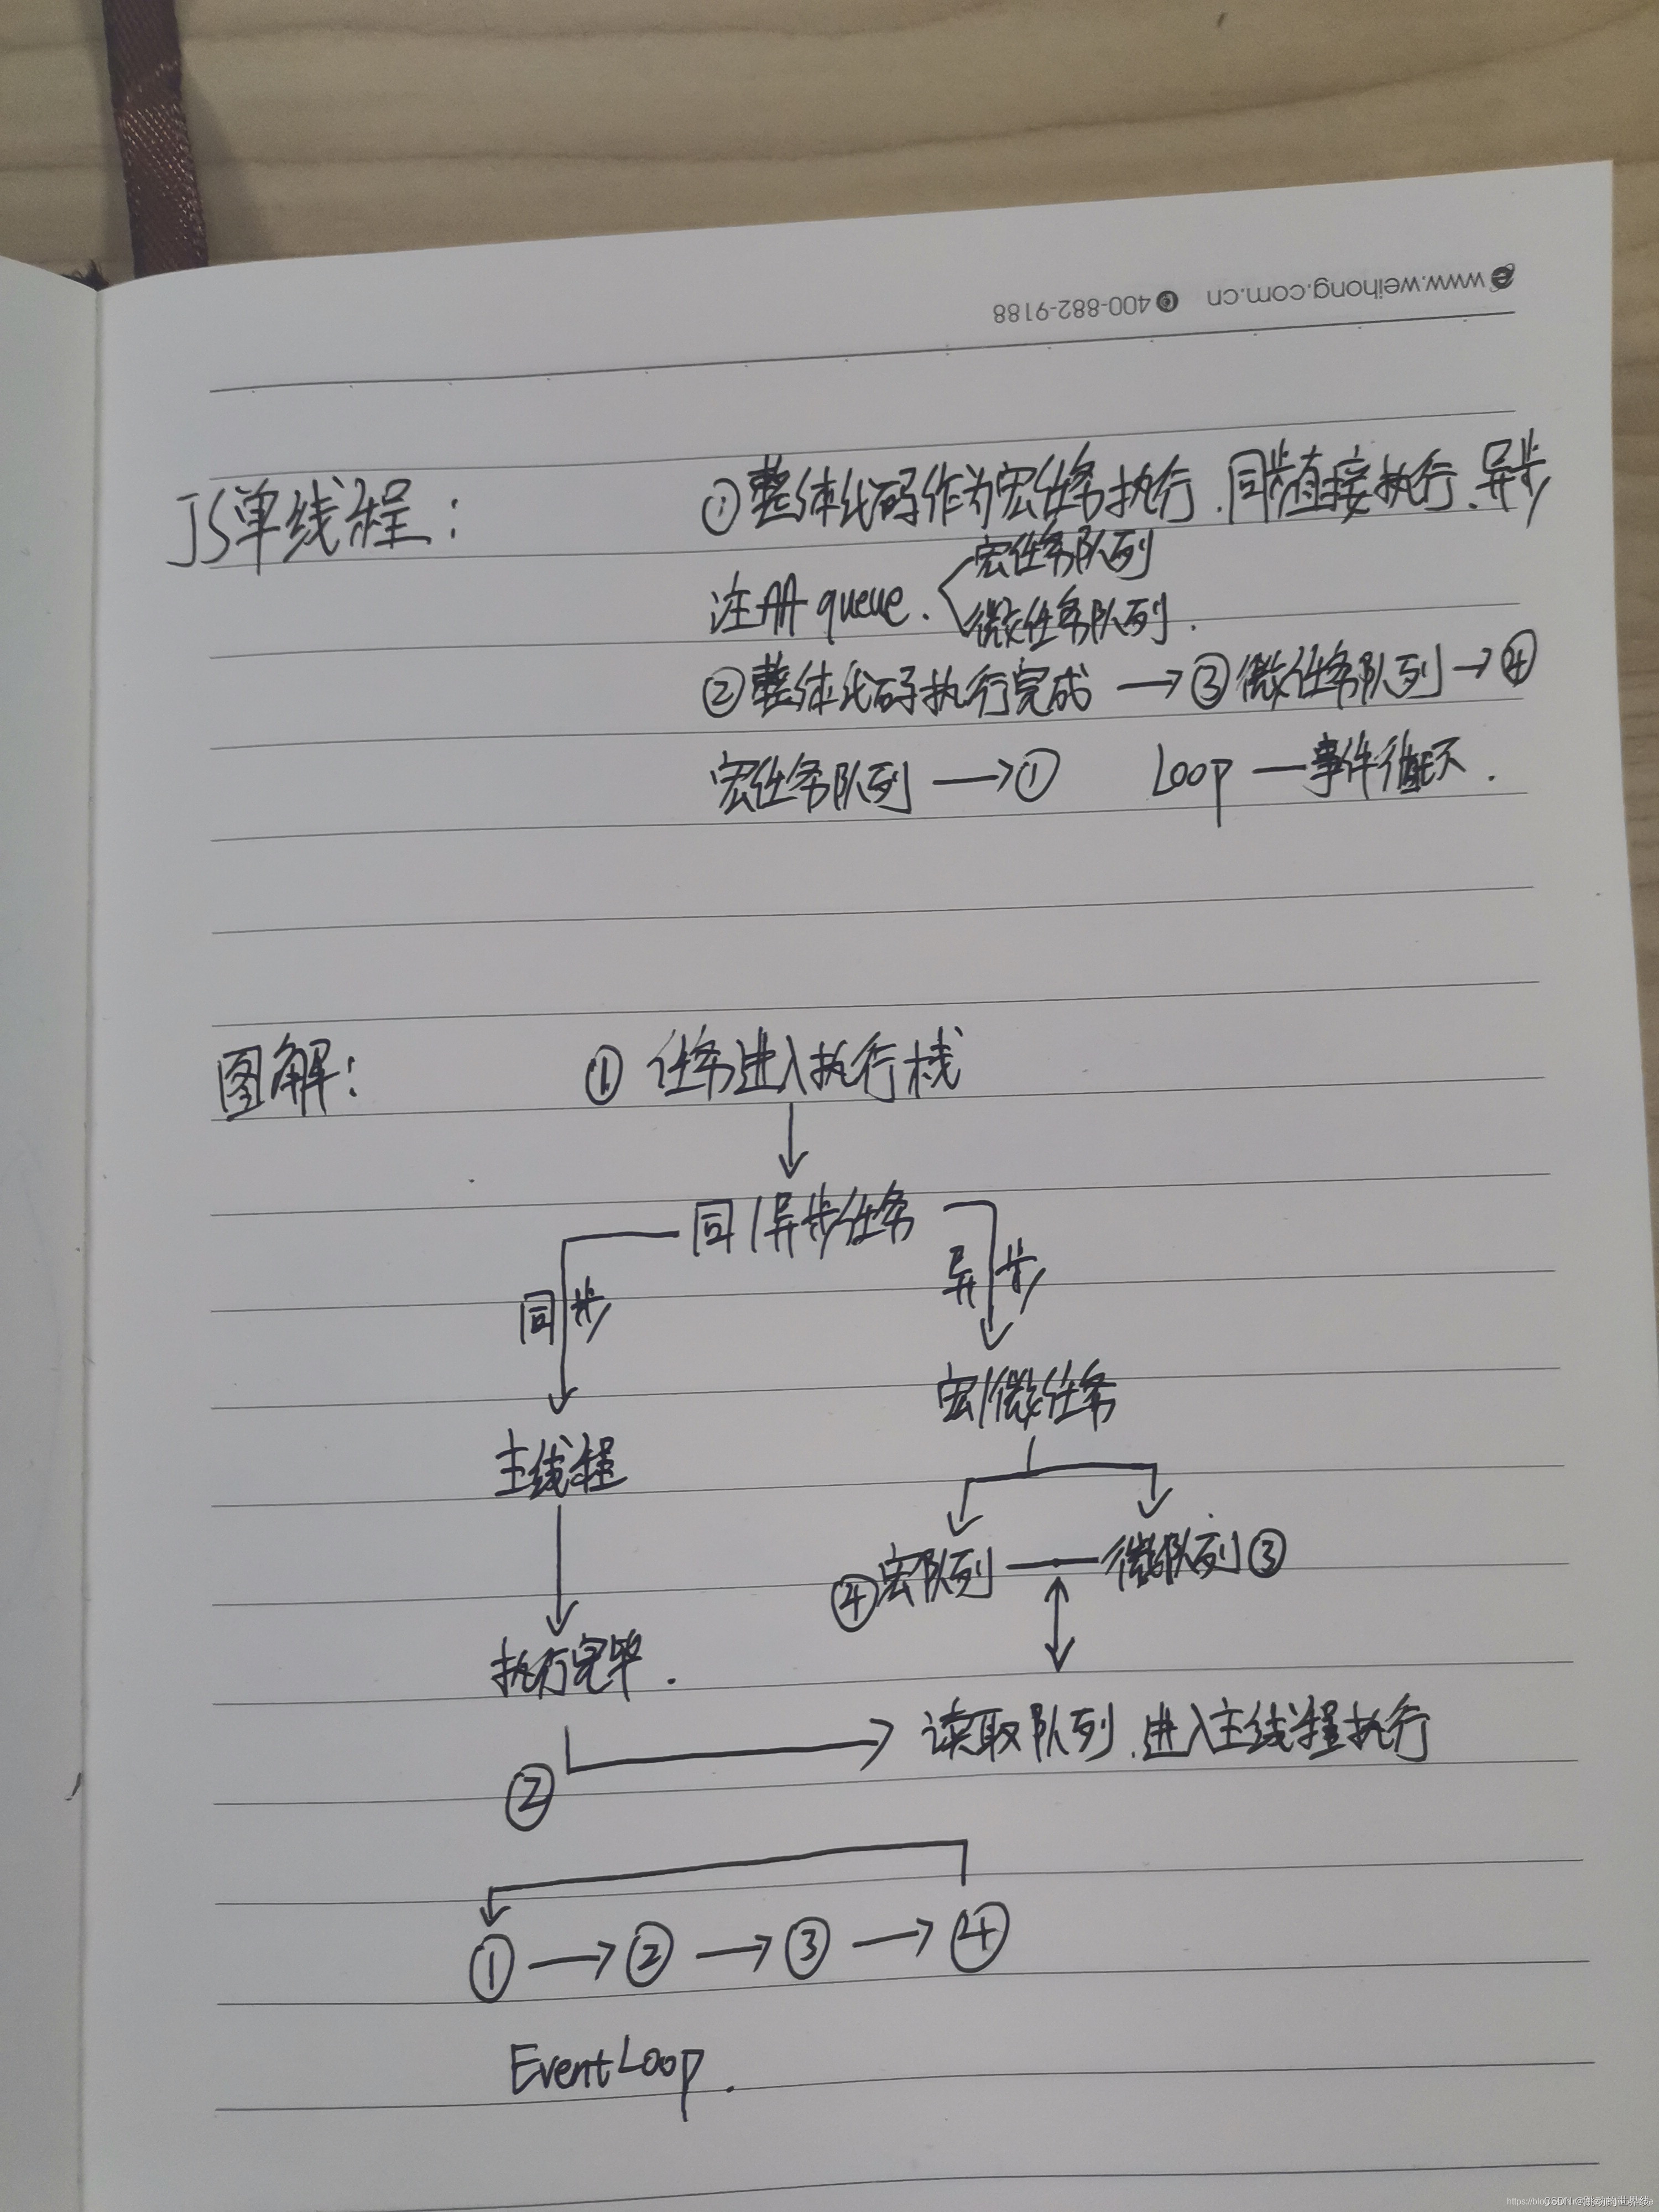 www.weihong.com.cn 400-882-9188
JS单线程： ①整体代码作为宏任务执行.同步直接执行、异步
宏任务队列
注册queue.
微任务队列.
②整体代码执行完成→③微任务队列→④
宏任务队列→① Loop—事件循环.
图解： ① 任务进入执行栈
同/异步任务
同步 异步
宏/微任务
主线程
④宏队列—微队列③
执行完毕.
读取队列.进入主线程执行
②
①→②→③→④
EventLoop.